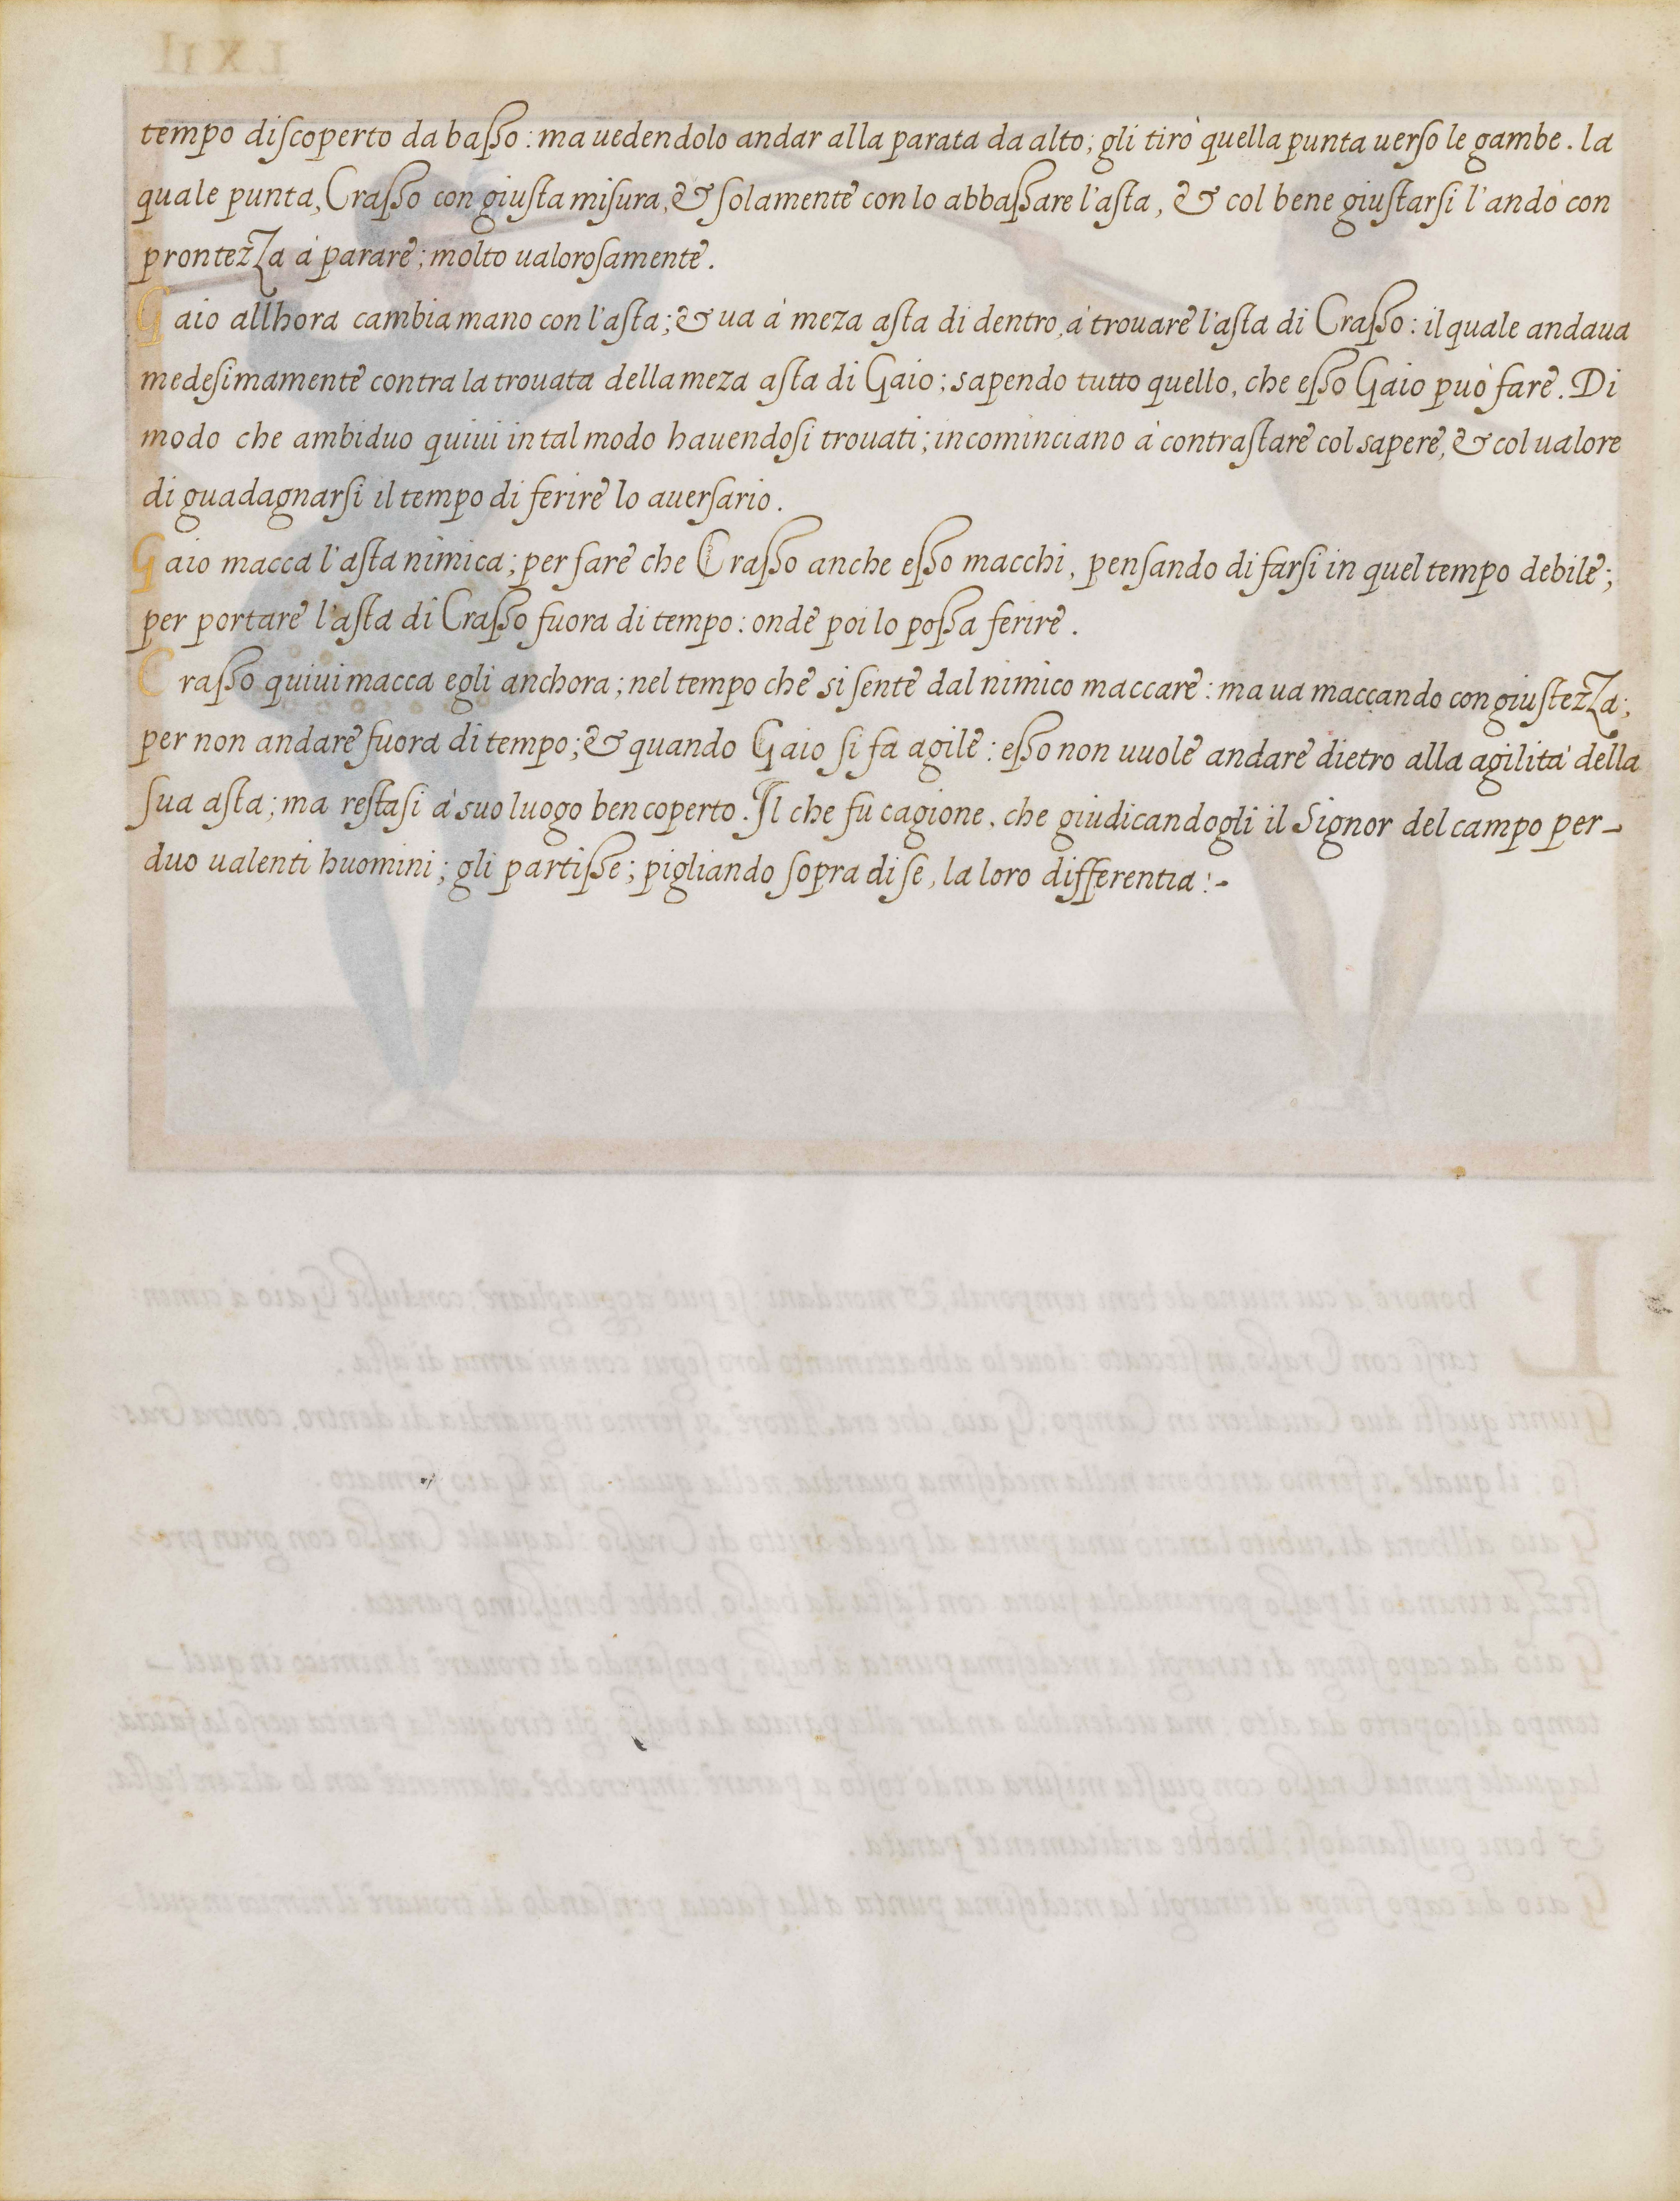 tempo diſcoperto da baſso: ma uedendolo andar alla parata da alto; gli tirò quella punta uerſo le gambe. la
quale punta, Craſso con giuſta miſura, & ſolamente con lo abbaſsare l'aſta, & col bene giuſtarſi l'andò con
prontezza à parare; molto ualoroſamente.
Gaio allhora cambia mano con l'aſta; & ua à meza aſta di dentro, à trouare l'aſta di Craſso: il quale andaua
medeſimamente contra la trouata della meza aſta di Gaio; sapendo tutto quello, che eſso Gaio può fare. Di
modo che ambiduo quiui in tal modo hauendoſi trouati; incominciano à contraſtare col sapere, & col ualore
di guadagnarſi il tempo di ferire lo auerſario.
Gaio macca l'aſta nimica; per fare che Craſso anche eſso macchi, penſando di farſi in quel tempo debile;
per portare l'aſta di Craſso fuora di tempo: onde poi lo poſsa ferire.
Craſso quiui macca egli anchora; nel tempo che si sente dal nimico maccare: ma ua maccando con giuſtezza;
per non andare fuora di tempo; & quando Gaio ſi fa agile: eſso non uuole andare dietro alla agilità della
ſua aſta; ma reſtaſi à suo luogo ben coperto. Il che fù cagione, che giudicandogli il Signor del campo per-
duo ualenti huomini; gli partiſse; pigliando ſopra di ſe, la loro differentia:-